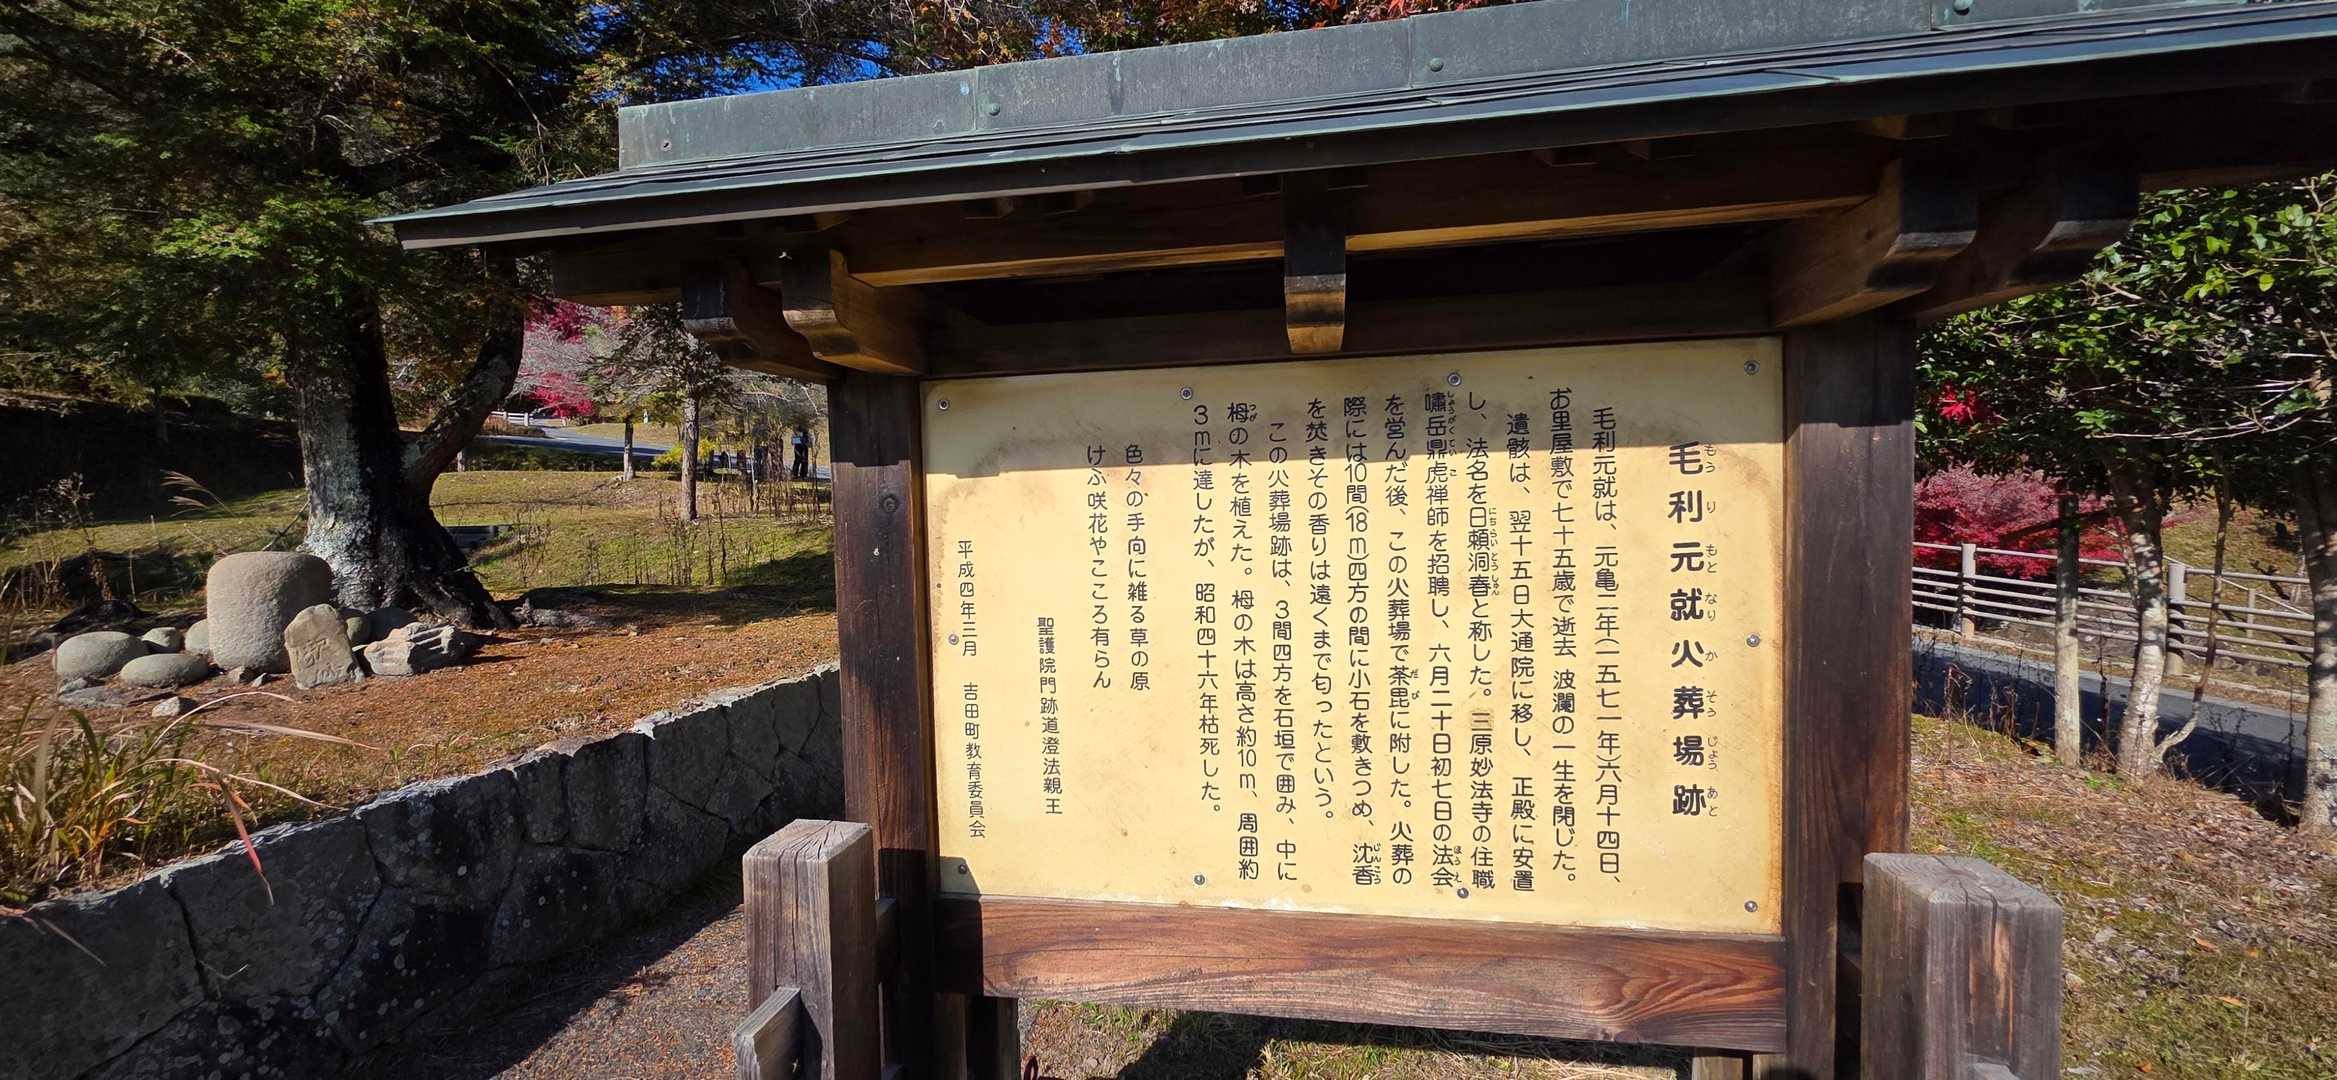 毛利元就火葬場跡
もうりもとなりかそうじょうあと
毛利元就は、元亀二年(一五七一年)六月十四日、
お里屋敷で七十五歳で逝去、波瀾の一生を閉じた。
遺骸は、翌十五日大通院に移し、正殿に安置
し、法名を日頼洞春と称した。三原妙法寺の住職
にちらいとうしゅん
嘯岳鼎虎禅師を招聘し、六月二十日初七日の法会
しょうがくていこ
ほうえ
を営んだ後、この火葬場で荼毘に附した。火葬の
だび
際には10間(18m)四方の間に小石を敷きつめ、沈香
じんこう
を焚きその香りは遠くまで匂ったという。
この火葬場跡は、3間四方を石垣で囲み、中に
栂の木を植えた。栂の木は高さ約10m、周囲約
つが
3mに達したが、昭和四十六年枯死した。
色々の手向に雑る草の原
けふ咲花やこころ有らん
聖護院門跡道澄法親王
平成四年三月 吉田町教育委員会